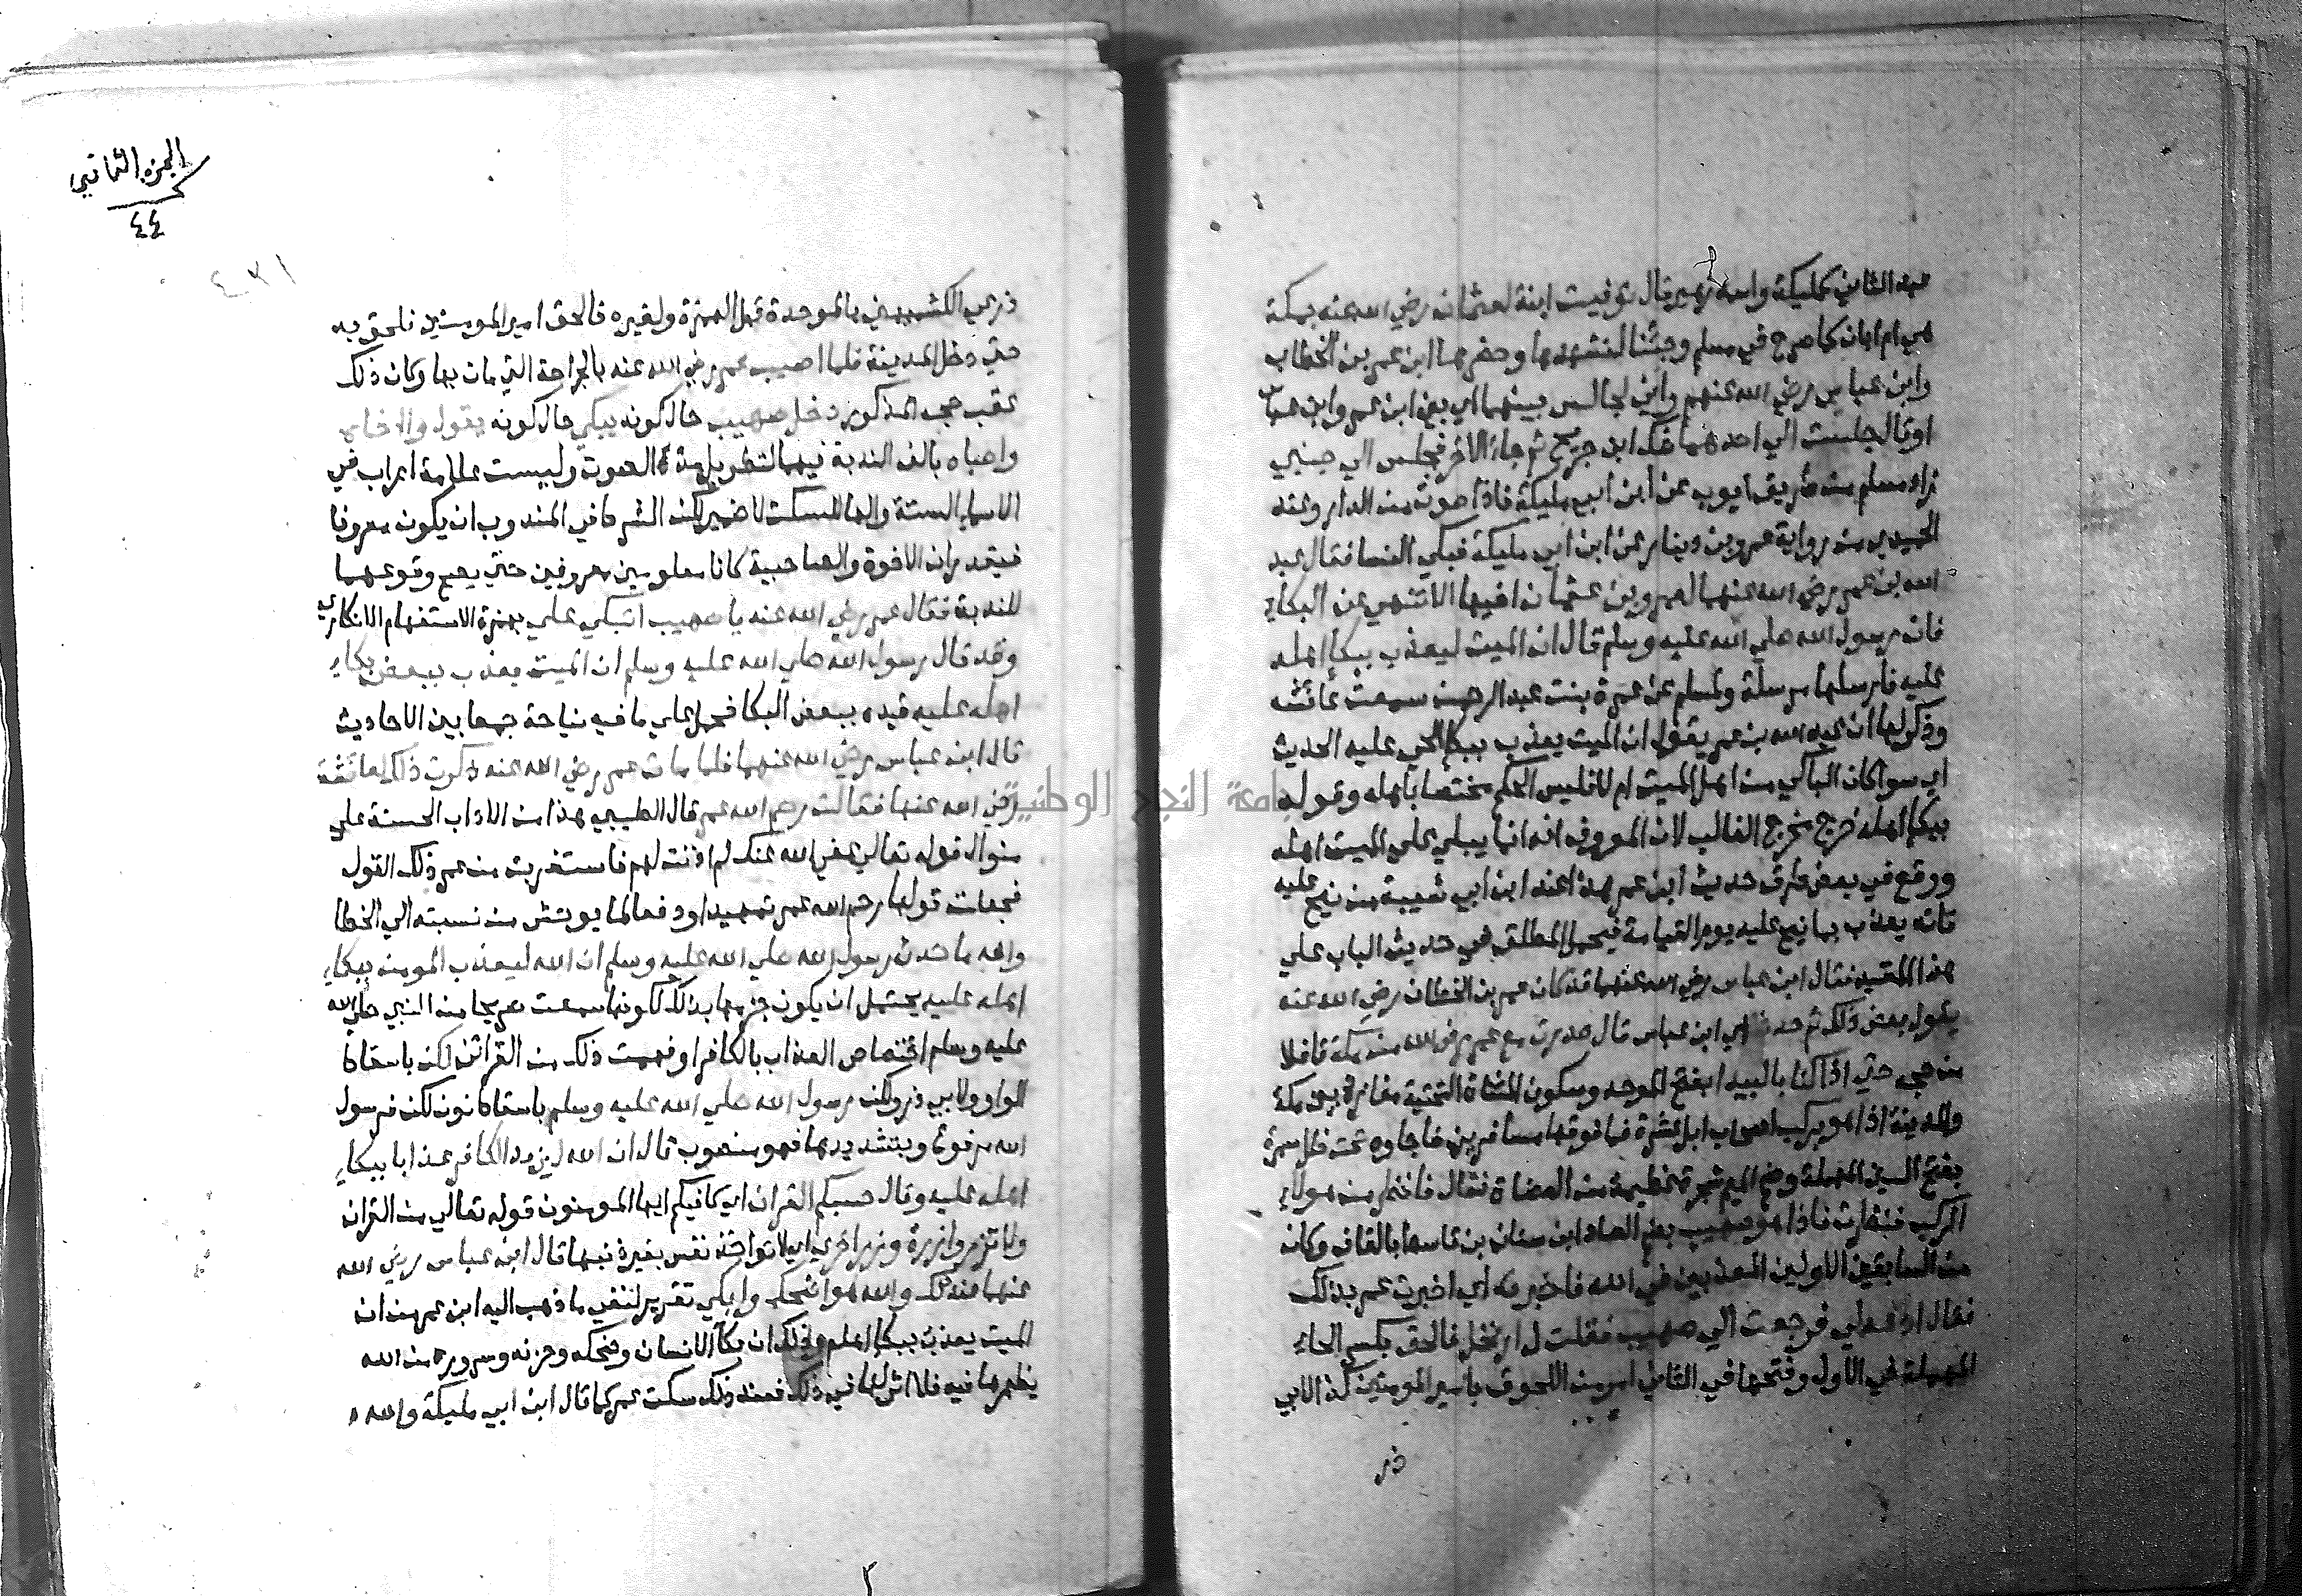 عبد الثاني مليكة واسمه زهير قال توفيت ابنة لعثمان رضي الله عنه بمكة
هي ام ابان كما صرح في مسلم وجئنا لنشهدها وحضرها ابن عمر بن الخطاب
وابن عباس رضي الله عنهم واني لجالس بينهما اي بين ابن عمر وابن عباس
او قال جلست الي احدهما شك ابن جريج ثم جاء الاخر فجلس الي جنبي
زاد مسلم من طريق ايوب عن ابن ابي مليكة فاذا صوت من الدار وعند
الحميدي من رواية عمرو بن دينار عن ابن ابي مليكة فبكي النسا فقال عبد
الله بن عمر رضي الله عنهما لعمرو بن عثمان اخيها الا تنهي عن البكاء
فان رسول الله صلي الله عليه وسلم قال ان الميت ليعذب ببكا اهله
عليه فارسلها مرسلة ولمسلم عن عمرة بنت عبد الرحمن سمعت عائشه
وذكر لها ان عبد الله بن عمر يقول ان الميت يعذب ببكا الحي عليه الحديث
اي سوا كان الباكي من اهل الميت ام لا فليس الحكم مختصا باهله وقوله
ببكا اهله خرج مخرج الغالب لان المعروف انه انما يبكي علي الميت اهله
ووقع في بعض طرق حديث ابن عمر هذا عند ابن ابي شيبة من نيح عليه
فانه يعذب بما نيح عليه يوم القيامة فيحمل المطلق في حديث الباب علي
هذا المقيد فقال ابن عباس رضي الله عنهما قد كان عمر بن الخطاب رضي الله عنه
يقول بعض ذلك ثم حدث اي ابن عباس قال صدرت مع عمر رضي الله من مكة قافلا
من حجه حتي اذا كنا بالبيدا بفتح الموحده وسكون المثناة التحتية مفازة بين مكة
والمدينة اذا هو بركب اصحاب ابل عشرة فما فوقها مسافرين فاجاوه تحت ظل سمرة
بفتح السين المهملة وضم الميم شجرة عظيمة من العضاة فقال فاذهب فانظر من هولاء
الركب فنظرت فاذا هو صهيب بضم الصاد ابن سنان بن قاسط بالقاف وكان
من السابقين الاولين المعذبين في الله فاخبرته اي اخبرت عمر بذلك
فقال ادعه لي فرجعت الي صهيب فقلت له ارتحل فالحق بكسر الحاء
المهملة في الاول وفتحها في الثاني امر من اللحوق بامير المومنين كذا لابي
ذر
الجزء الثاني
٤٤
ذر عن الكشميهني بالموحدة قبل الهمزة ولغيره فالحق امير المومنين فلحق به
حتي دخل المدينة فلما اصيب عمر رضي الله عنه بالجراحة التي مات بها وكان ذلك
عقب حجه المذكور دخل صهيب حال كونه يبكي حال كونه يقول وااخاه
واصاحباه بالف الندبة فيهما لتطويل مدة الصوت وليست علامة اعراب في
الاسماء الستة والها للسكت لا ضمير لكن الشرط في المندوب ان يكون معروفا
فيقدر ان الاخوة والصاحبية كانا معلومين معروفين حتي يصح وقوعهما
للندبة فقال عمر رضي الله عنه يا صهيب اتبكي علي بهمزة الاستفهام الانكاري
وقد قال رسول الله صلي الله عليه وسلم ان الميت يعذب ببعض بكاء
اهله عليه قيده ببعض البكا فحمل علي ما فيه نياحة جمعا بين الاحاديث
قال ابن عباس رضي الله عنهما فلما مات عمر رضي الله عنه ذكرت ذلك لعائشة
رضي الله عنها فقالت رحم الله عمر قال الطيبي هذا من الاداب الحسنة علي
منوال قوله تعالي عفي الله عنك لم اذنت لهم فاستغربت من عمر ذلك القول
فجعلت قولها رحم الله عمر تمهيدا ودفعا لما يوحش من نسبته الي الخطا
والله ما حدث رسول الله صلي الله عليه وسلم ان الله ليعذب المومن ببكاء
اهله عليه يحتمل ان يكون جزمها بذلك لكونها سمعت صريحا من النبي صلي الله
عليه وسلم اختصاص العذاب بالكافر او فهمت ذلك من القرائن لكن باسقاط
الواو ولابي ذر ولكن رسول الله صلي الله عليه وسلم باسقاط نون لكن فرسول
الله مرفوع وبتشديدها فهو منصوب قال ان الله ليزيد الكافر عذابا ببكاء
اهله عليه وقال حسبكم القران اي كافيكم ايها المومنون قوله تعالي من القران
ولا تزر وازرة وزر اخري اي لا تواخذ نفس بغيرة فيها قال ابن عباس رضي الله
عنهما عند ذلك والله هو اضحك وابكي تقرير لنفي ما ذهب اليه ابن عمر من ان
الميت يعذب ببكا اهله وذلك ان بكا الانسان وضحكه وحزنه وسروره من الله
يظهرها فيه فلا اثر لها في ذلك فعند ذلك سكت عمر كما قال ابن ابي مليكة والله
جامعة النجاح الوطنية